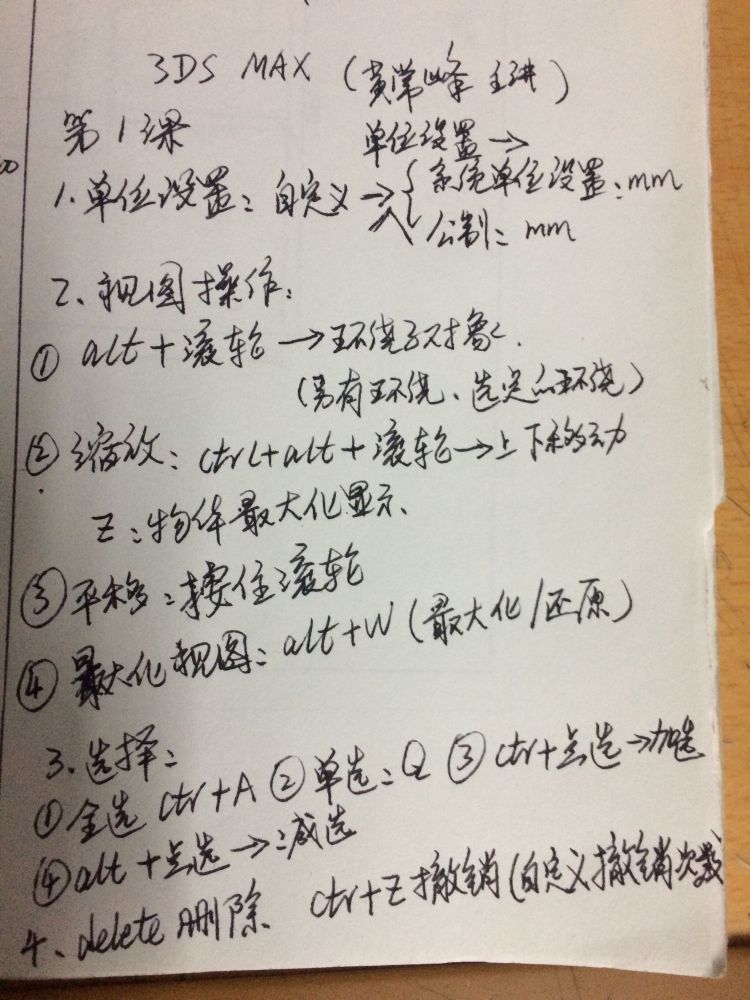 3DS MAX (黄常峰 主讲)
第1课
单位设置→
1. 单位设置: 自定义→{系统单位设置:mm
公制: mm
2、视图操作:
① alt+滚轮→环绕子对象.
(另有环绕、选定的环绕)
② 缩放: ctrl+alt+滚轮→上下移动
Z:物体最大化显示、
③ 平移:按住滚轮
④ 最大化视图: alt+W (最大化/还原)
3、选择:
①全选 ctr+A ②单选:Q ③ ctr+点选→加选
④alt+点选→:减选
4、delete 删除 ctr+Z 撤销(自定义撤销次数